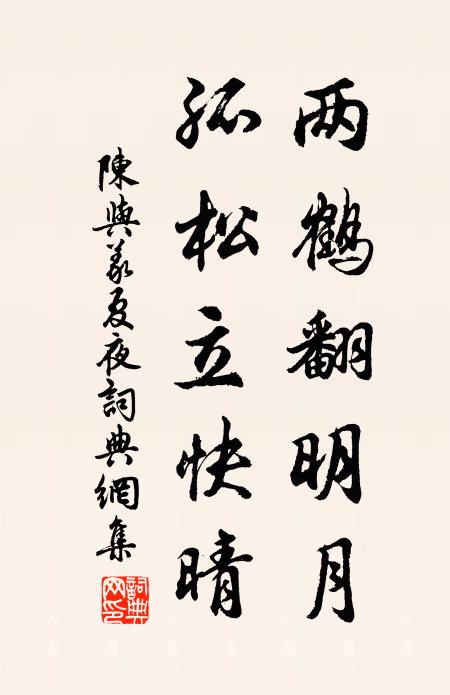 两鶴翻明月
孤松立快晴
陳與義夏夜詞典網集
詞典网印